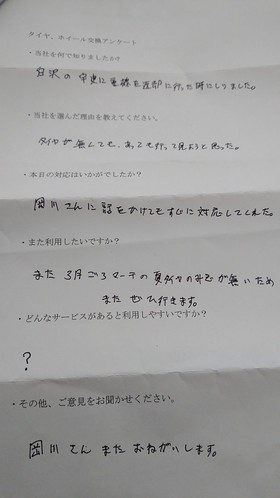 タイヤ、ホイール交換アンケート
・当社を何で知りましたか?
白沢の中古に電線を売却に行った時にしりました。
・当社を選んだ理由を教えてください。
タイヤが無くても、あっても行って見ようと思った。
・本日の対応はいかがでしたか?
岡川さんに話をかけてもすぐに対応してくれた。
・また利用したいですか?
また3月ごろマーチの夏タイヤの が無いため
また ぜひ行きます。
・どんなサービスがあると利用しやすいですか?
?
・その他、ご意見をお聞かせください。
岡川さん またおねがいします。